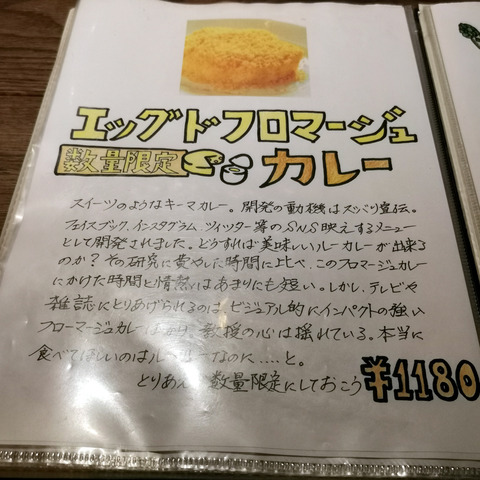 エッグドフロマージュ
数量限定 カレー
スイーツのようなキーマカレー。開発の動機はスッパリ宣伝。
フェイスブック、インスタグラム、ツイッター等のSNS映えするメニュー
として開発されました。どうすれば美味しいルーカレーが出来る
のか？その研究に費やした時間に比べ、このフロマージュカレー
にかけた時間と情熱はあまりにも短い。しかし、テレビや
雑誌にとりあげられるのは、ビジュアル的にインパクトの強い
フロマージュカレー 教授の心は揺れている。本当に
食べてほしいのはルー なのに……と。
とりあえ 数量限定にしておこう ¥1180